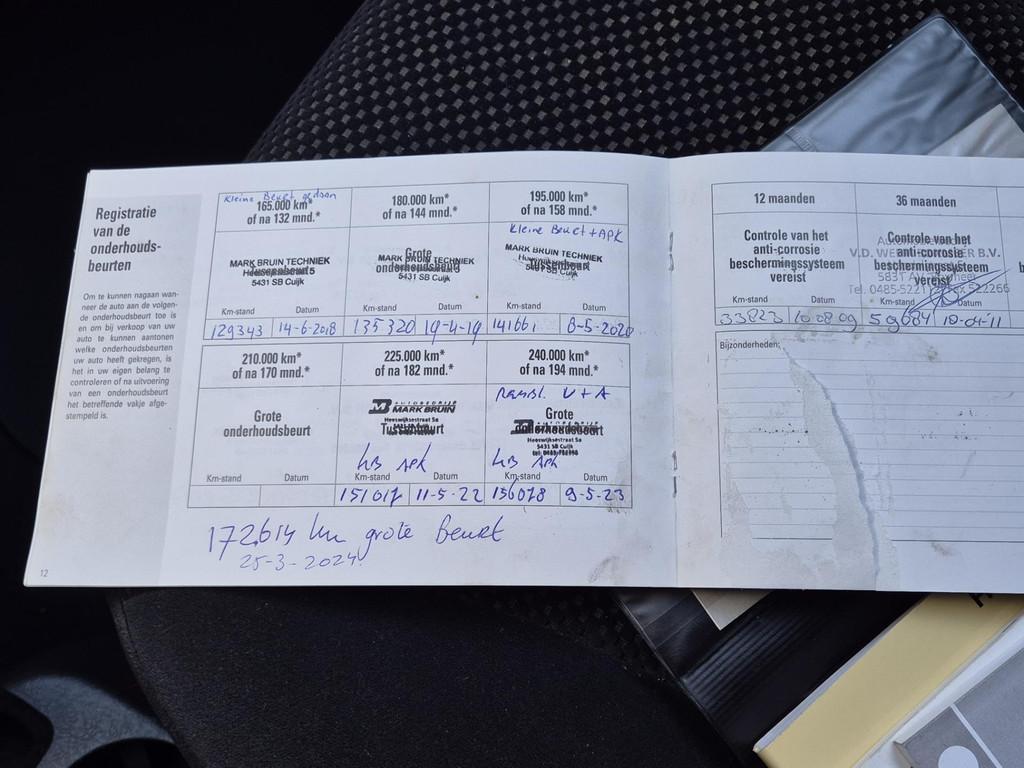 Registratie
van de
onderhouds-
beurten
Om te kunnen nagaan wan-
neer de auto aan de volgen-
de onderhoudsbeurt toe is
en om bij verkoop van uw
auto te kunnen aantonen
welke onderhoudsbeurten
uw auto heeft gekregen, is
het in uw eigen belang te
controleren of na uitvoering
van een onderhoudsbeurt
het betreffende vakje afge-
stempeld is.
12
Kleine Beurt gedaan
165.000 km*
of na 132 mnd.*
MARK BRUIN TECHNIEK
Tussenbeurt
5431 SB Cuijk
Km-stand Datum
129343 14-6-2018
180.000 km*
of na 144 mnd.*
Grote
MARK BRUIN TECHNIEK
onderhoudsbeurt
5431 SB Cuijk
Km-stand Datum
135320 19-4-19
195.000 km*
of na 158 mnd.*
Kleine Beurt + APK
MARK BRUIN TECHNIEK
Tussenbeurt
5431 SB Cuijk
Km-stand Datum
141661 8-5-2020
210.000 km*
of na 170 mnd.*
Grote
onderhoudsbeurt
Km-stand Datum
225.000 km*
of na 182 mnd.*
AUTOBEDRIJF
MARK BRUIN
Heeswijksestraat 5a
Tussenbeurt
KB APK
Km-stand Datum
151017 11-5-22
240.000 km*
of na 194 mnd.*
Remsl. V + A
Grote
onderhoudsbeurt
Heeswijksestraat 5a
5431 SB Cuijk
KB APK
Km-stand Datum
156078 9-5-23
172.614 km grote Beurt
25-3-2024
12 maanden
Controle van het
anti-corrosie
beschermingssysteem
vereist
Km-stand Datum
33823 10-08-09
36 maanden
Controle van het
anti-corrosie
beschermingssysteem
vereist
Tel. 0485-522
Km-stand Datum
59684 19-04-11
Bijzonderheden: